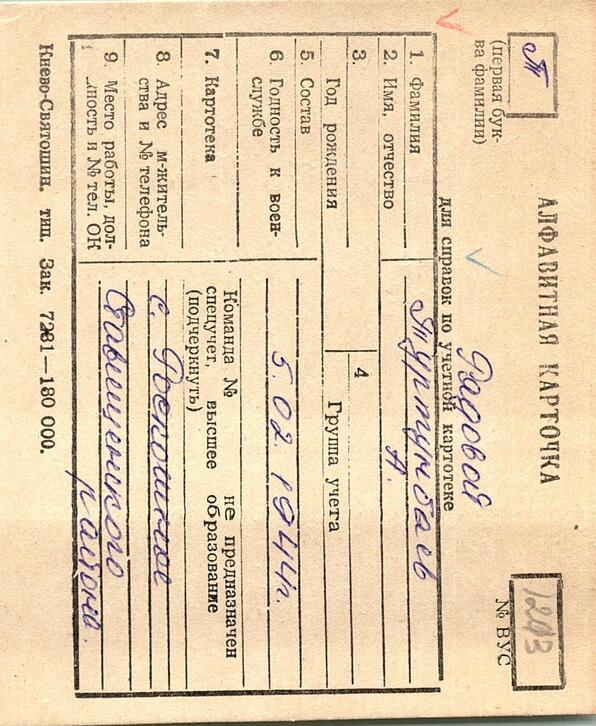 АЛФАВИТНАЯ КАРТОЧКА
Т
(первая бук-
ва фамилии)
№ ВУС
Рядовой
для справок по учетной картотеке
1. Фамилия Туртунбаев
2. Имя, отчество А.
3.
Год рождения
4
Группа учета
5. Состав
6. Годность к воен-
службе
5.02.1944г.
7. Картотека
Команда № не предназначен
спецучет, высшее образование
(подчеркнуть)
8. Адрес м-житель-
ства и № телефона
с. Роскошное
9. Место работы, дол-
ность и № тел. ОК
Ставищенского
района.
Киево-Святошин. тип. Зак. 7281—180 000.